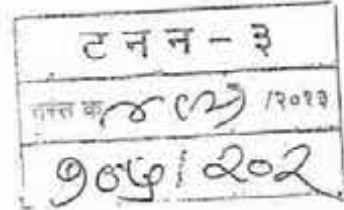 ट न न - ३
दस्त क्र /२०१३
१०५ / २०२